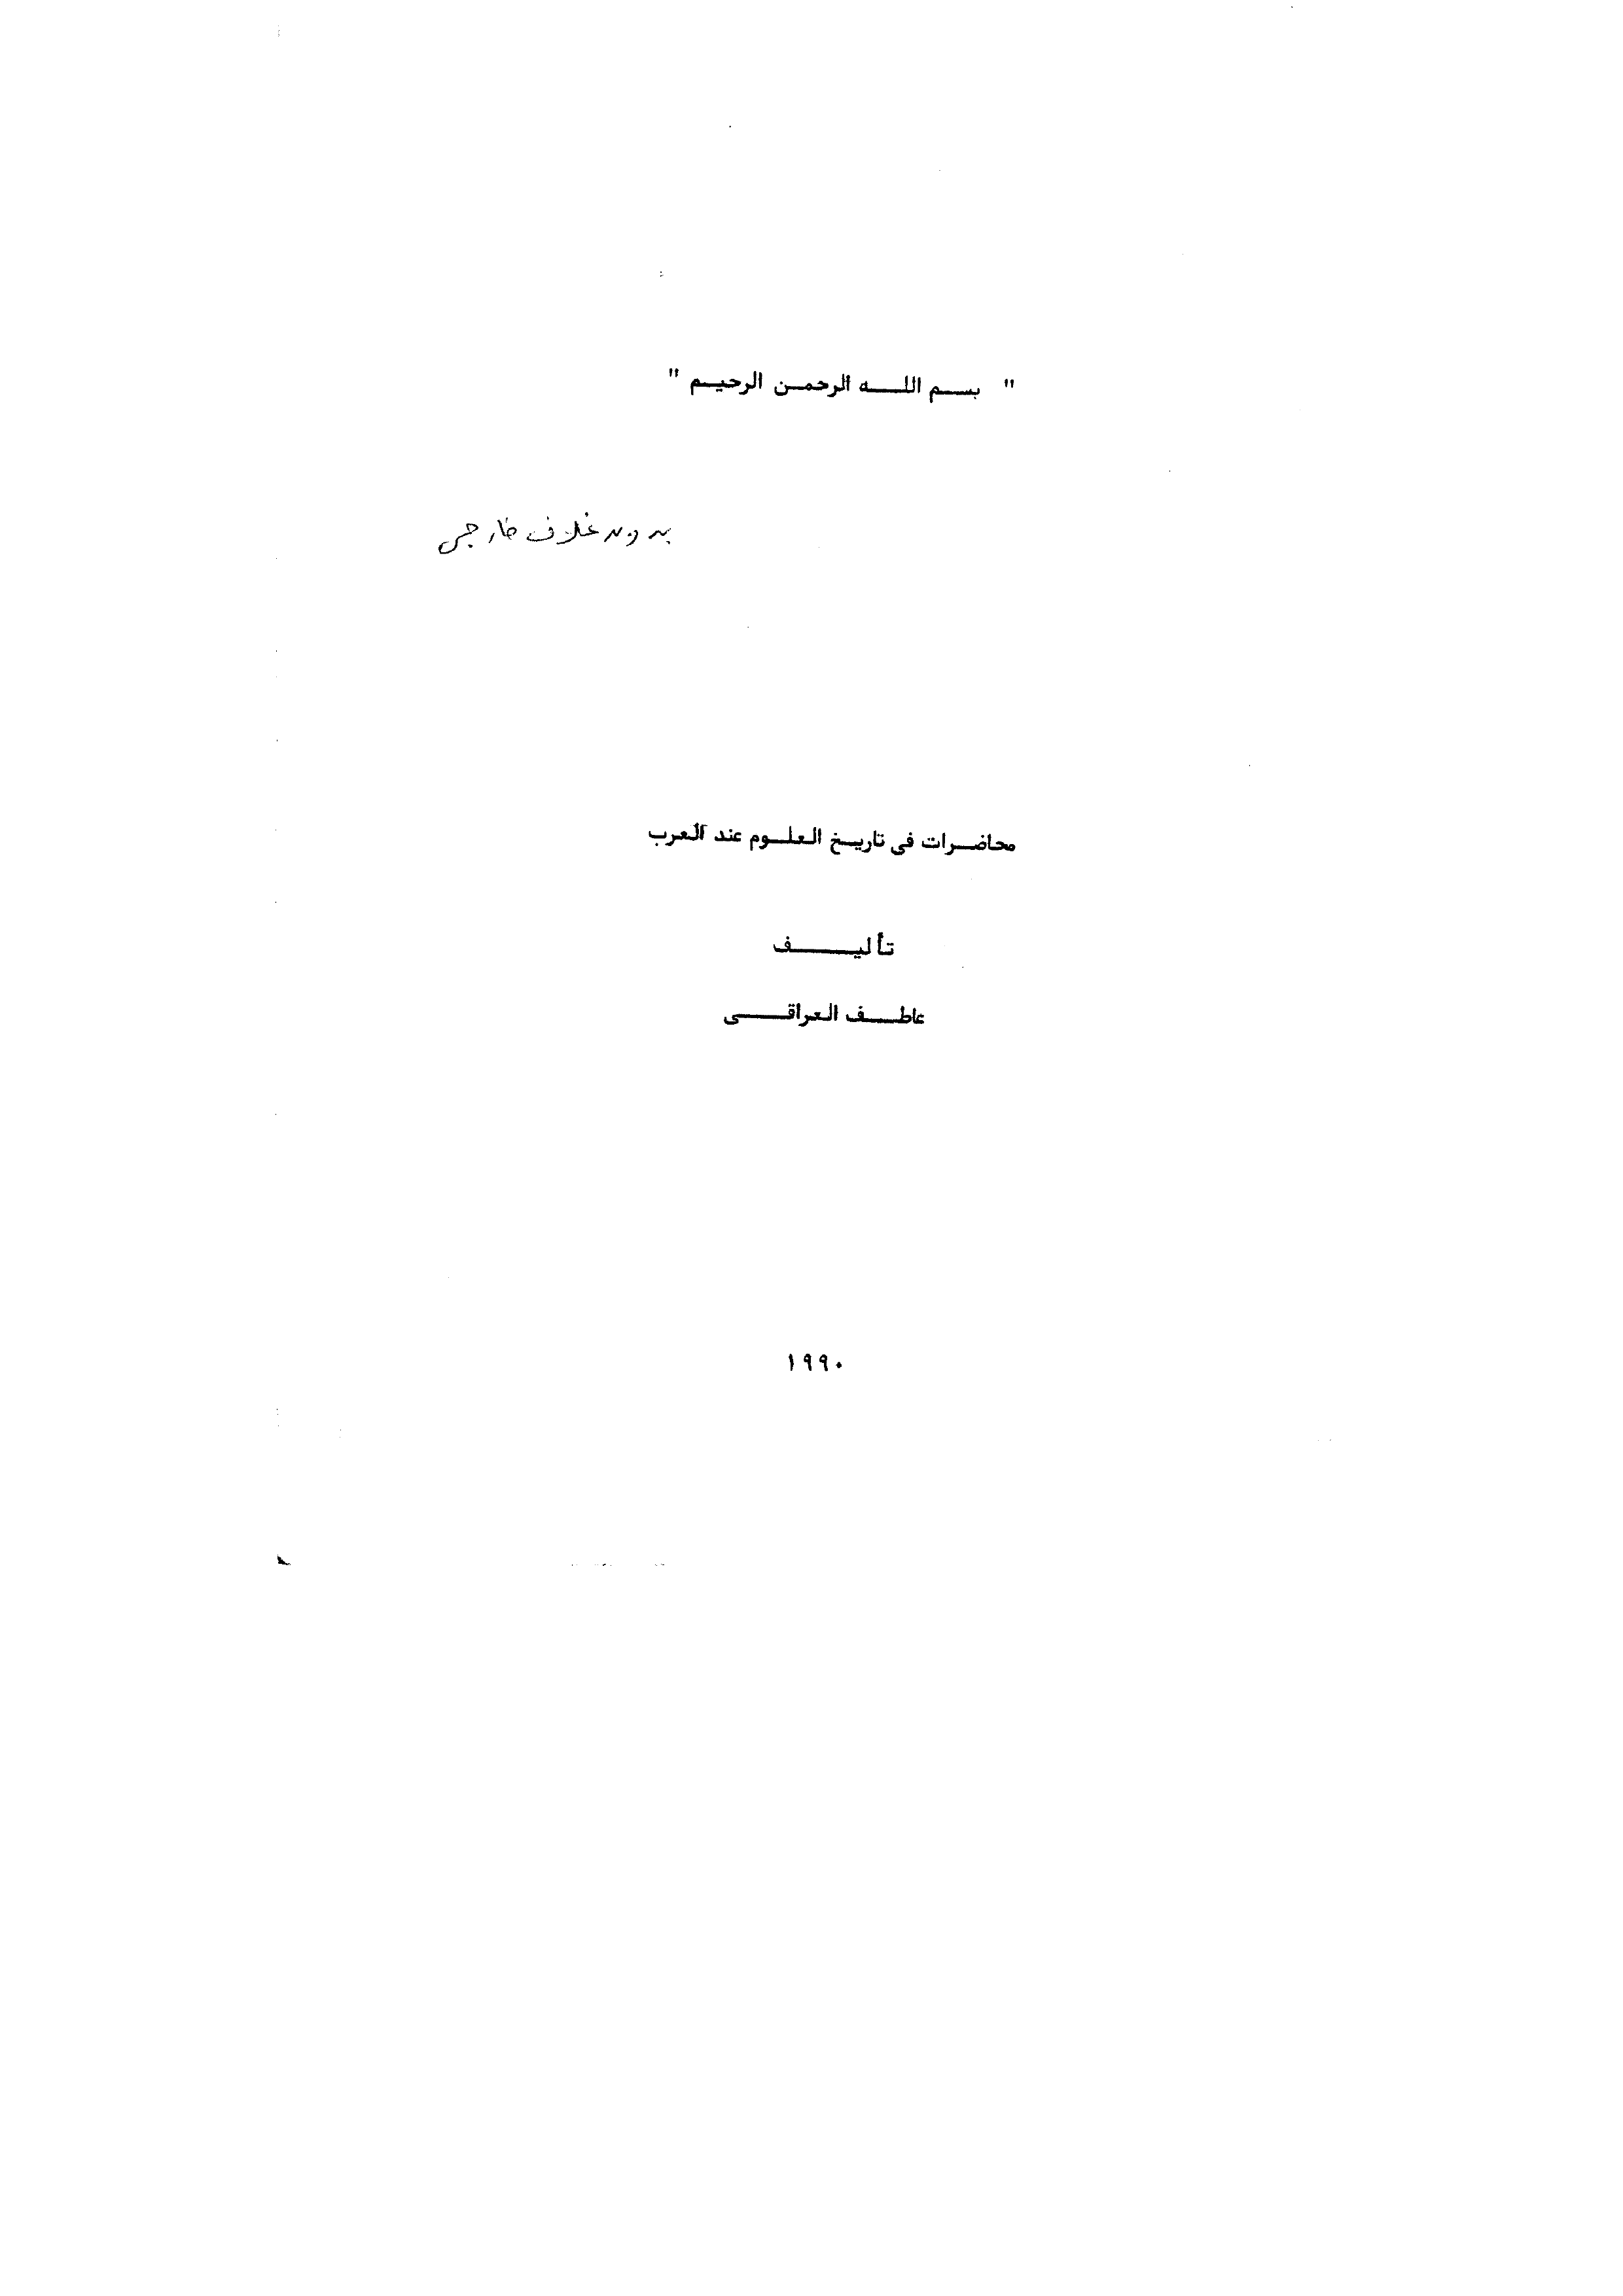 " بسم الله الرحمن الرحيم "
بدون غلاف خارجى
محاضرات فى تاريخ العلوم عند العرب
تأليف
عاطف العراقى
١٩٩٠